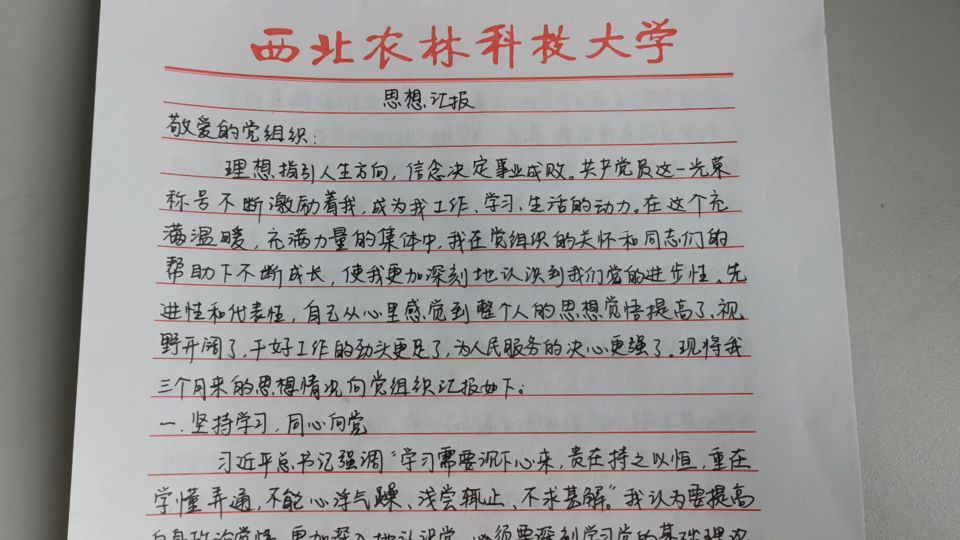 西北农林科技大学
思想汇报
敬爱的党组织:
理想指引人生方向,信念决定事业成败。共产党员这一光荣
称号不断激励着我,成为我工作、学习、生活的动力。在这个充
满温暖,充满力量的集体中,我在党组织的关怀和同志们的
帮助下不断成长,使我更加深刻地认识到我们党的进步性、先
进性和代表性,自己从心里感觉到整个人的思想觉悟提高了、视
野开阔了,干好工作的劲头更足了,为人民服务的决心更强了。现将我
三个月来的思想情况向党组织汇报如下:
一.坚持学习,同心向党
习近平总书记强调“学习需要沉下心来,贵在持之以恒,重在
学懂弄通,不能心浮气躁、浅尝辄止、不求甚解。”我认为要提高
自身政治觉悟,更加深入地认识党,必须要深刻学习党的基础理论